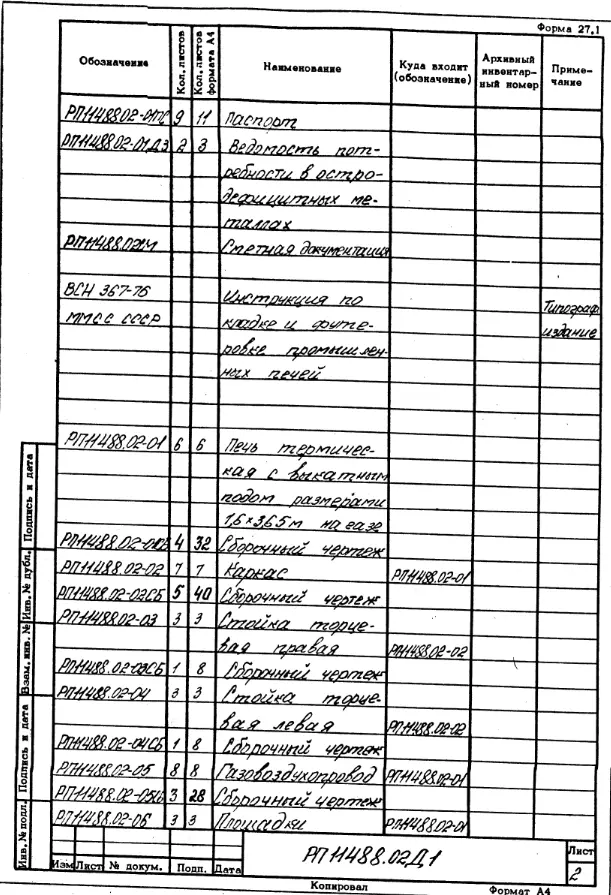 Форма 27.1
Обозначение Кол. листов Кол. листов формата А4 Наименование Куда входит (обозначение) Архивный инвентарный номер Приме-чание
РП11488.02-01ПС 9 11 Паспорт
РП11488.02-01Д3 2 3 Ведомость пот-
ребности в остро-
дефицитных ме-
таллах
Сметная документация
ВСН 367-76 Инструкция по Типограф.
ММСС СССР кладке и футе- издание
ровке промышлен-
ных печей
РП11488.02-01 6 6 Печь термичес-
кая с выкатным
подом размерами
1,6×3,65м на газе
4 32 Сборочный чертеж
РП11488.02-02 7 7 Каркас РП11488.02-01
РП11488.02-02СБ 5 40 Сборочный чертеж
РП11488.02-03 3 3 Стойка торце-
вая правая РП11488.02-02
РП11488.02-03СБ 1 8 Сборочный чертеж
РП11488.02-04 3 3 Стойка торце-
вая левая РП11488.02-02
РП11488.02-04СБ 1 8 Сборочный чертеж
РП11488.02-05 8 8 Газовоздухопровод РП11488.02-01
РП11488.02-05СБ 3 28 Сборочный чертеж
РП11488.02-06 3 3 Площадки РП11488.02-01
Инв. № подл. Подпись и дата Взам. инв. № Инв. № дубл. Подпись и дата
РП11488.02Д1
Лист
2
Изм Лист № докум. Подп. Дата
Копировал Формат А4